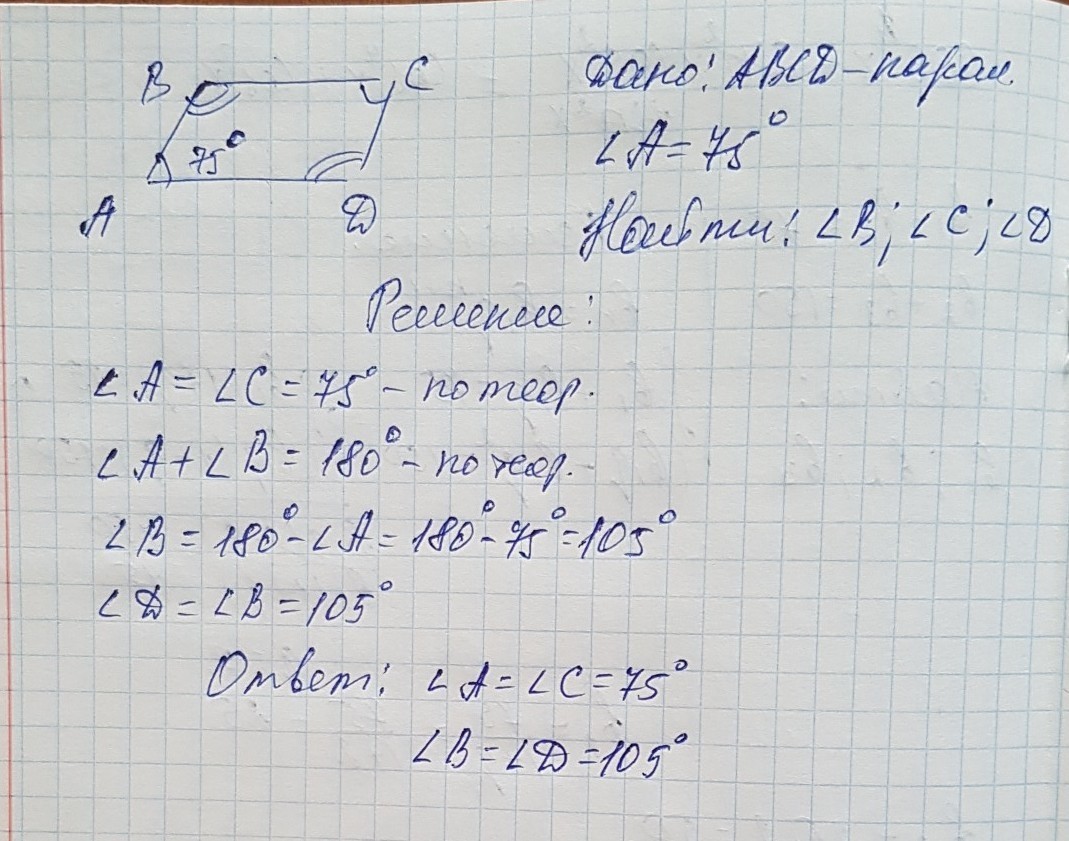 B C
75°
A D
Дано: ABCD – парал.
∠A = 75°
Найти: ∠B; ∠C; ∠D
Решение:
∠A = ∠C = 75° – по теор.
∠A + ∠B = 180° – по теор.
∠B = 180° - ∠A = 180° - 75° = 105°
∠D = ∠B = 105°
Ответ: ∠A = ∠C = 75°
∠B = ∠D = 105°